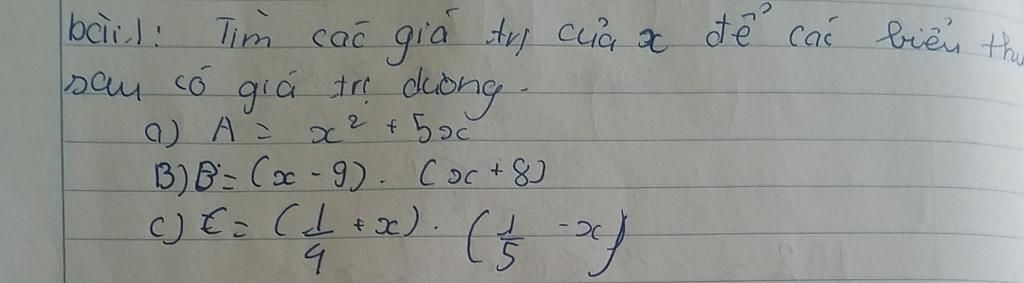 bài 1: Tìm các giá trị của x để các biểu thư
sau có giá trị dương.
a) A = x² + 5x
B) B = (x - 9). (x + 8)
c) C = (1/4 + x). (1/5 - x)